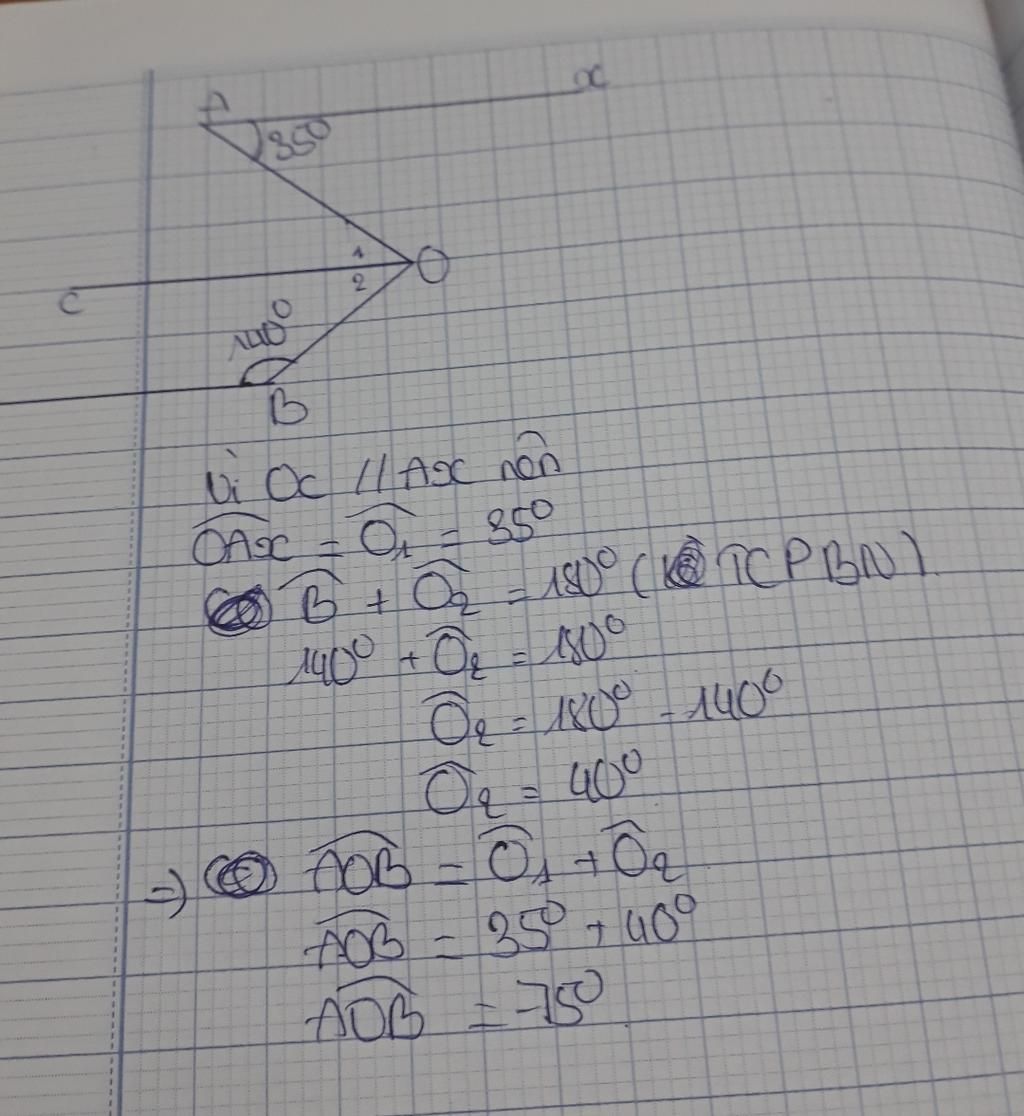 A x
35°
1
O
C 2
140°
B
Vì Oc // Ax nên
OAx = O₁ = 35°
B + O₂ = 180° ( TCPBN)
140° + O₂ = 180°
O₂ = 180° - 140°
O₂ = 40°
=> AOB = O₁ + O₂
AOB = 35° + 40°
AOB = 75°